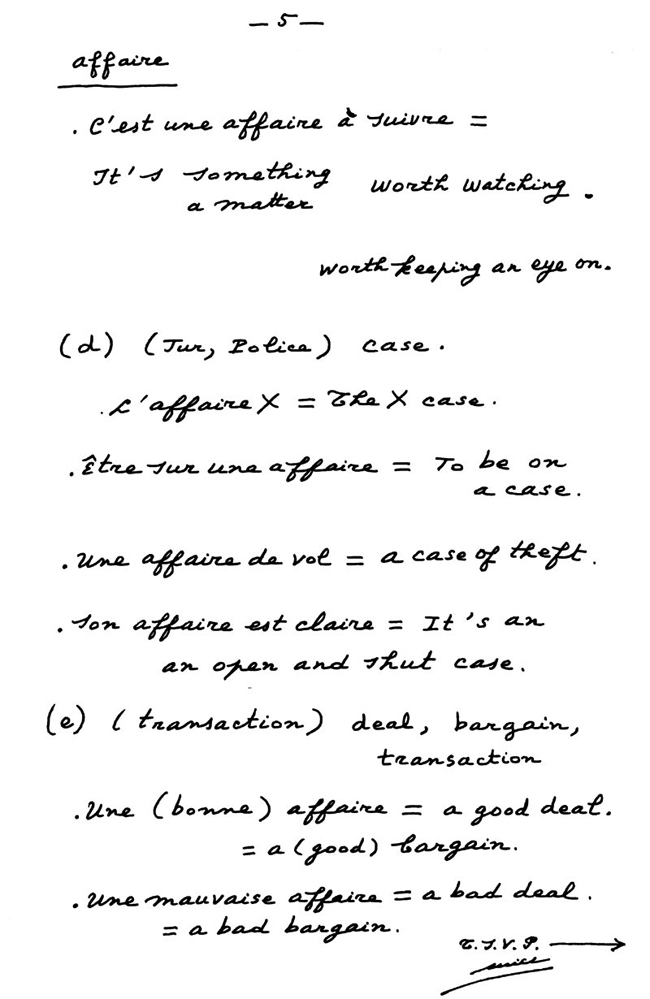 — 5 —
affaire
. C'est une affaire à suivre =
It's something worth watching.
a matter
worth keeping an eye on.
(d) (Jur, Police) case.
. L'affaire X = The X case.
. Être sur une affaire = To be on
a case.
. Une affaire de vol = a case of theft.
. Son affaire est claire = It's an
an open and shut case.
(e) (transaction) deal, bargain,
transaction
. Une (bonne) affaire = a good deal.
= a (good) bargain.
. Une mauvaise affaire = a bad deal.
= a bad bargain.
T.S.V.P. →